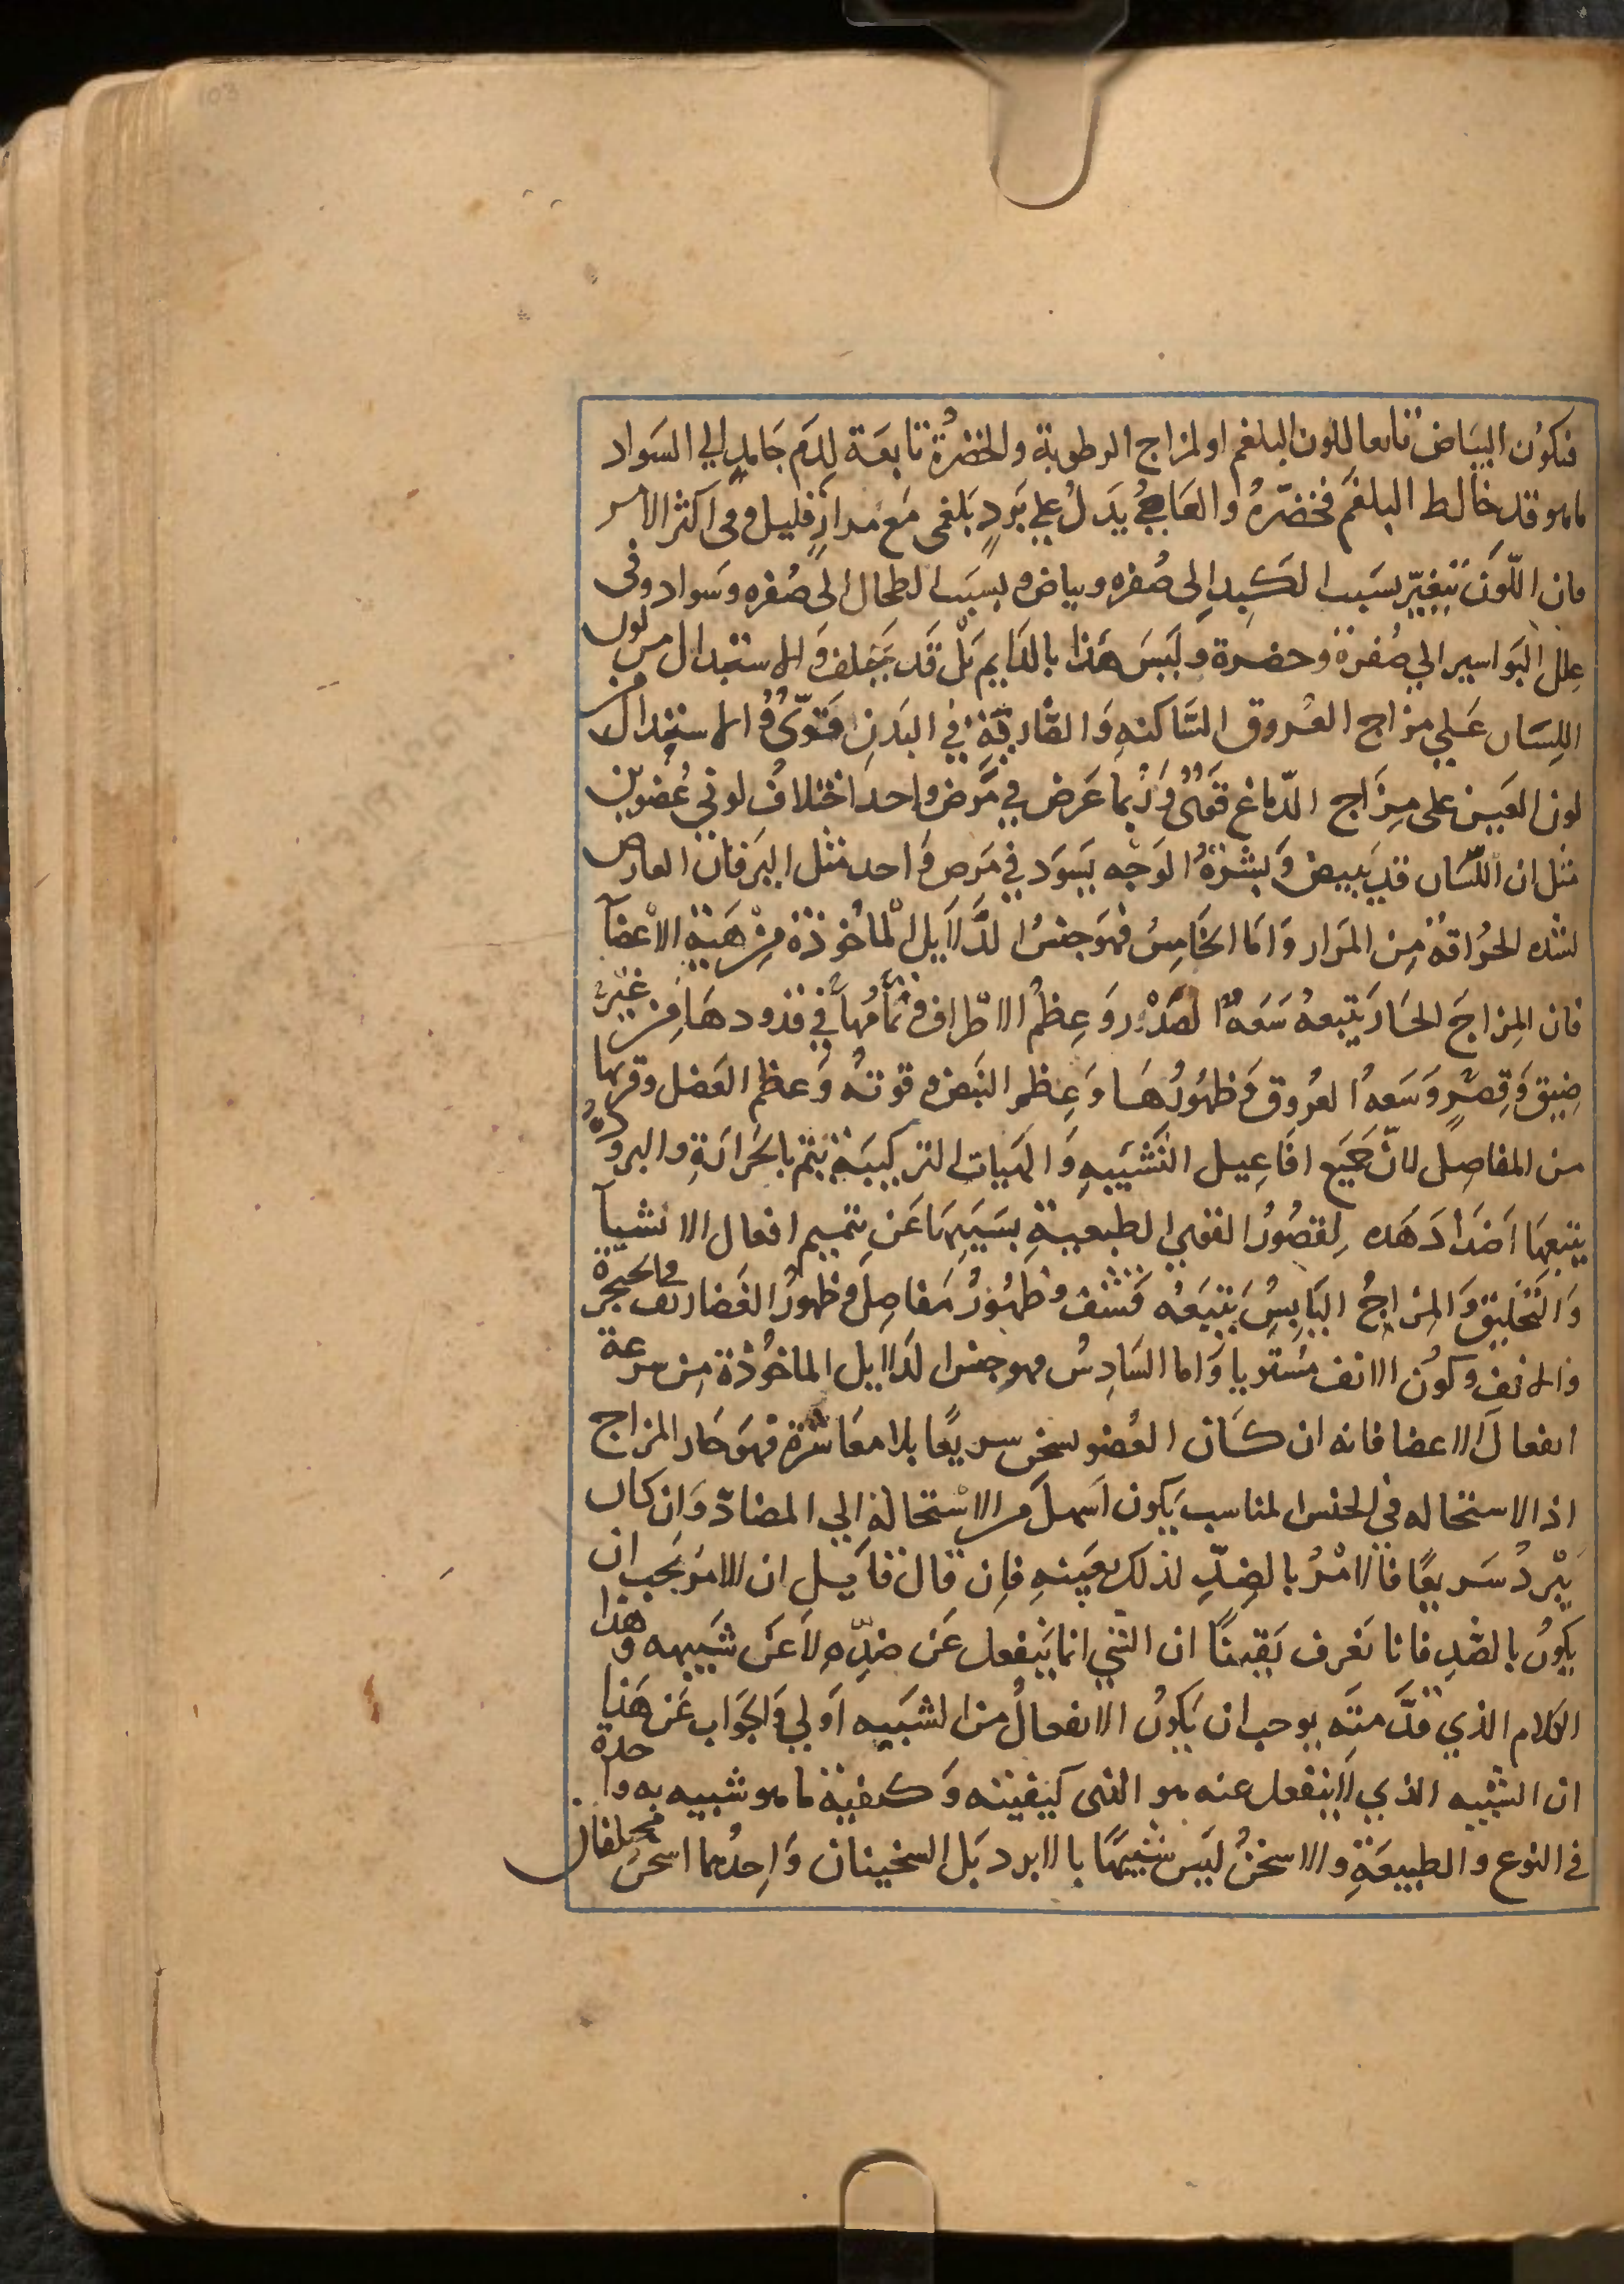 فيكون البياض تابعا للون البلغم او لمزاج الرطوبة والخضرة تابعة لدم جامد الي السواد
ما هو قد خالط البلغم فخضره والعاجي يدل علي برد بلغمي مع مرار قليل وفي اكثر الامر
فان اللون يتغير بسبب الكبد الى صفره وبياض وبسبب الطحال الى صفره وسواد وفي
علل البواسير الي صفرة وخضرة وليس هذا بالدايم بل قد يختلف والاستدلال من لون
اللسان علي مزاج العروق الساكنه والضاربة في البدن قوي والاستدلال من
لون العين على مزاج الدماغ قوي وربما عرض في مرض واحد اختلاف لوني عضوين
مثل ان اللسان قد يبيض وبشرة الوجه يسود في مرض واحد مثل اليرقان العارض
لشده الحراقة من المرار واما الخامس فهو جنس الدلايل الماخوذة من هية الاعضآ
فان المزاج الحار يتبعه سعة الصدر وعظم الاطراف وتمامها في قدودها من غير
ضيق وقصر وسعة العروق وظهورها وعظم النبض وقوته وعظم العضل وقربها
من المفاصل لان جميع افاعيل النشييه والهيات التركيبية يتم بالحرارة والبرودة
يتبعها اضداد هذه لقصور القوي الطبيعية بسببها عن تتميم افعال الانشيآ
والتخليق والمزاج اليابس يتبعه قشف وظهور مفاصل وظهور الغضاريف في الحنجرة
والانف وكون الانف مستويا واما السادس فهو جنس الدلايل الماخوذة من سرعة
انفعال الاعضا فانه ان كان العضو يسخن سريعًا بلا معاشرة فهو حار المزاج
اذ الاستحاله في الجنس المناسب يكون اسهل من الاستحالة الي المضاد وان كان
يبرد سريعًا فالامر بالضد لذلك بعينه فان قال قايل ان الامر يجب ان
يكون بالضد فانا نعرف يقينًا ان الشي انما ينفعل عن ضده لا عن شبيهه وهذا
الكلام الذي قدمته يوجب ان يكون الانفعال من الشبيه اولي والجواب عن هذا
ان الشبيه الذي لا ينفعل عنه هو الذي كيفيته وكيفية ما هو شبيه به واحدة
في النوع والطبيعة والاسخن ليس شبيهًا بالابرد بل السخينان واحدهما اسخن مختلفان